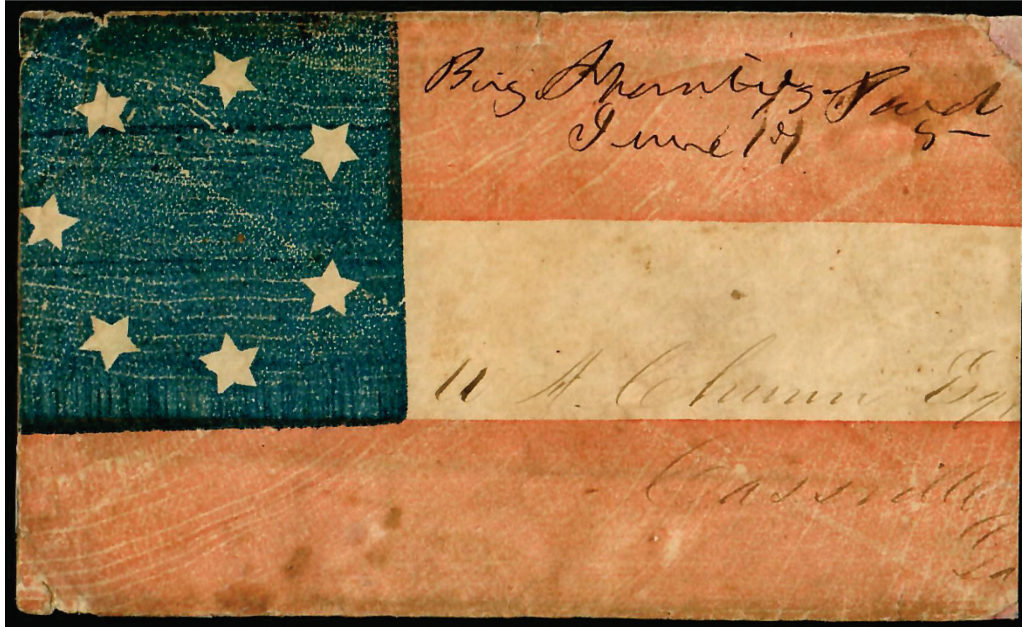 Big Shanty Ga Paid
June 19 5
A. Chunn Esqr
Cassville
Ga